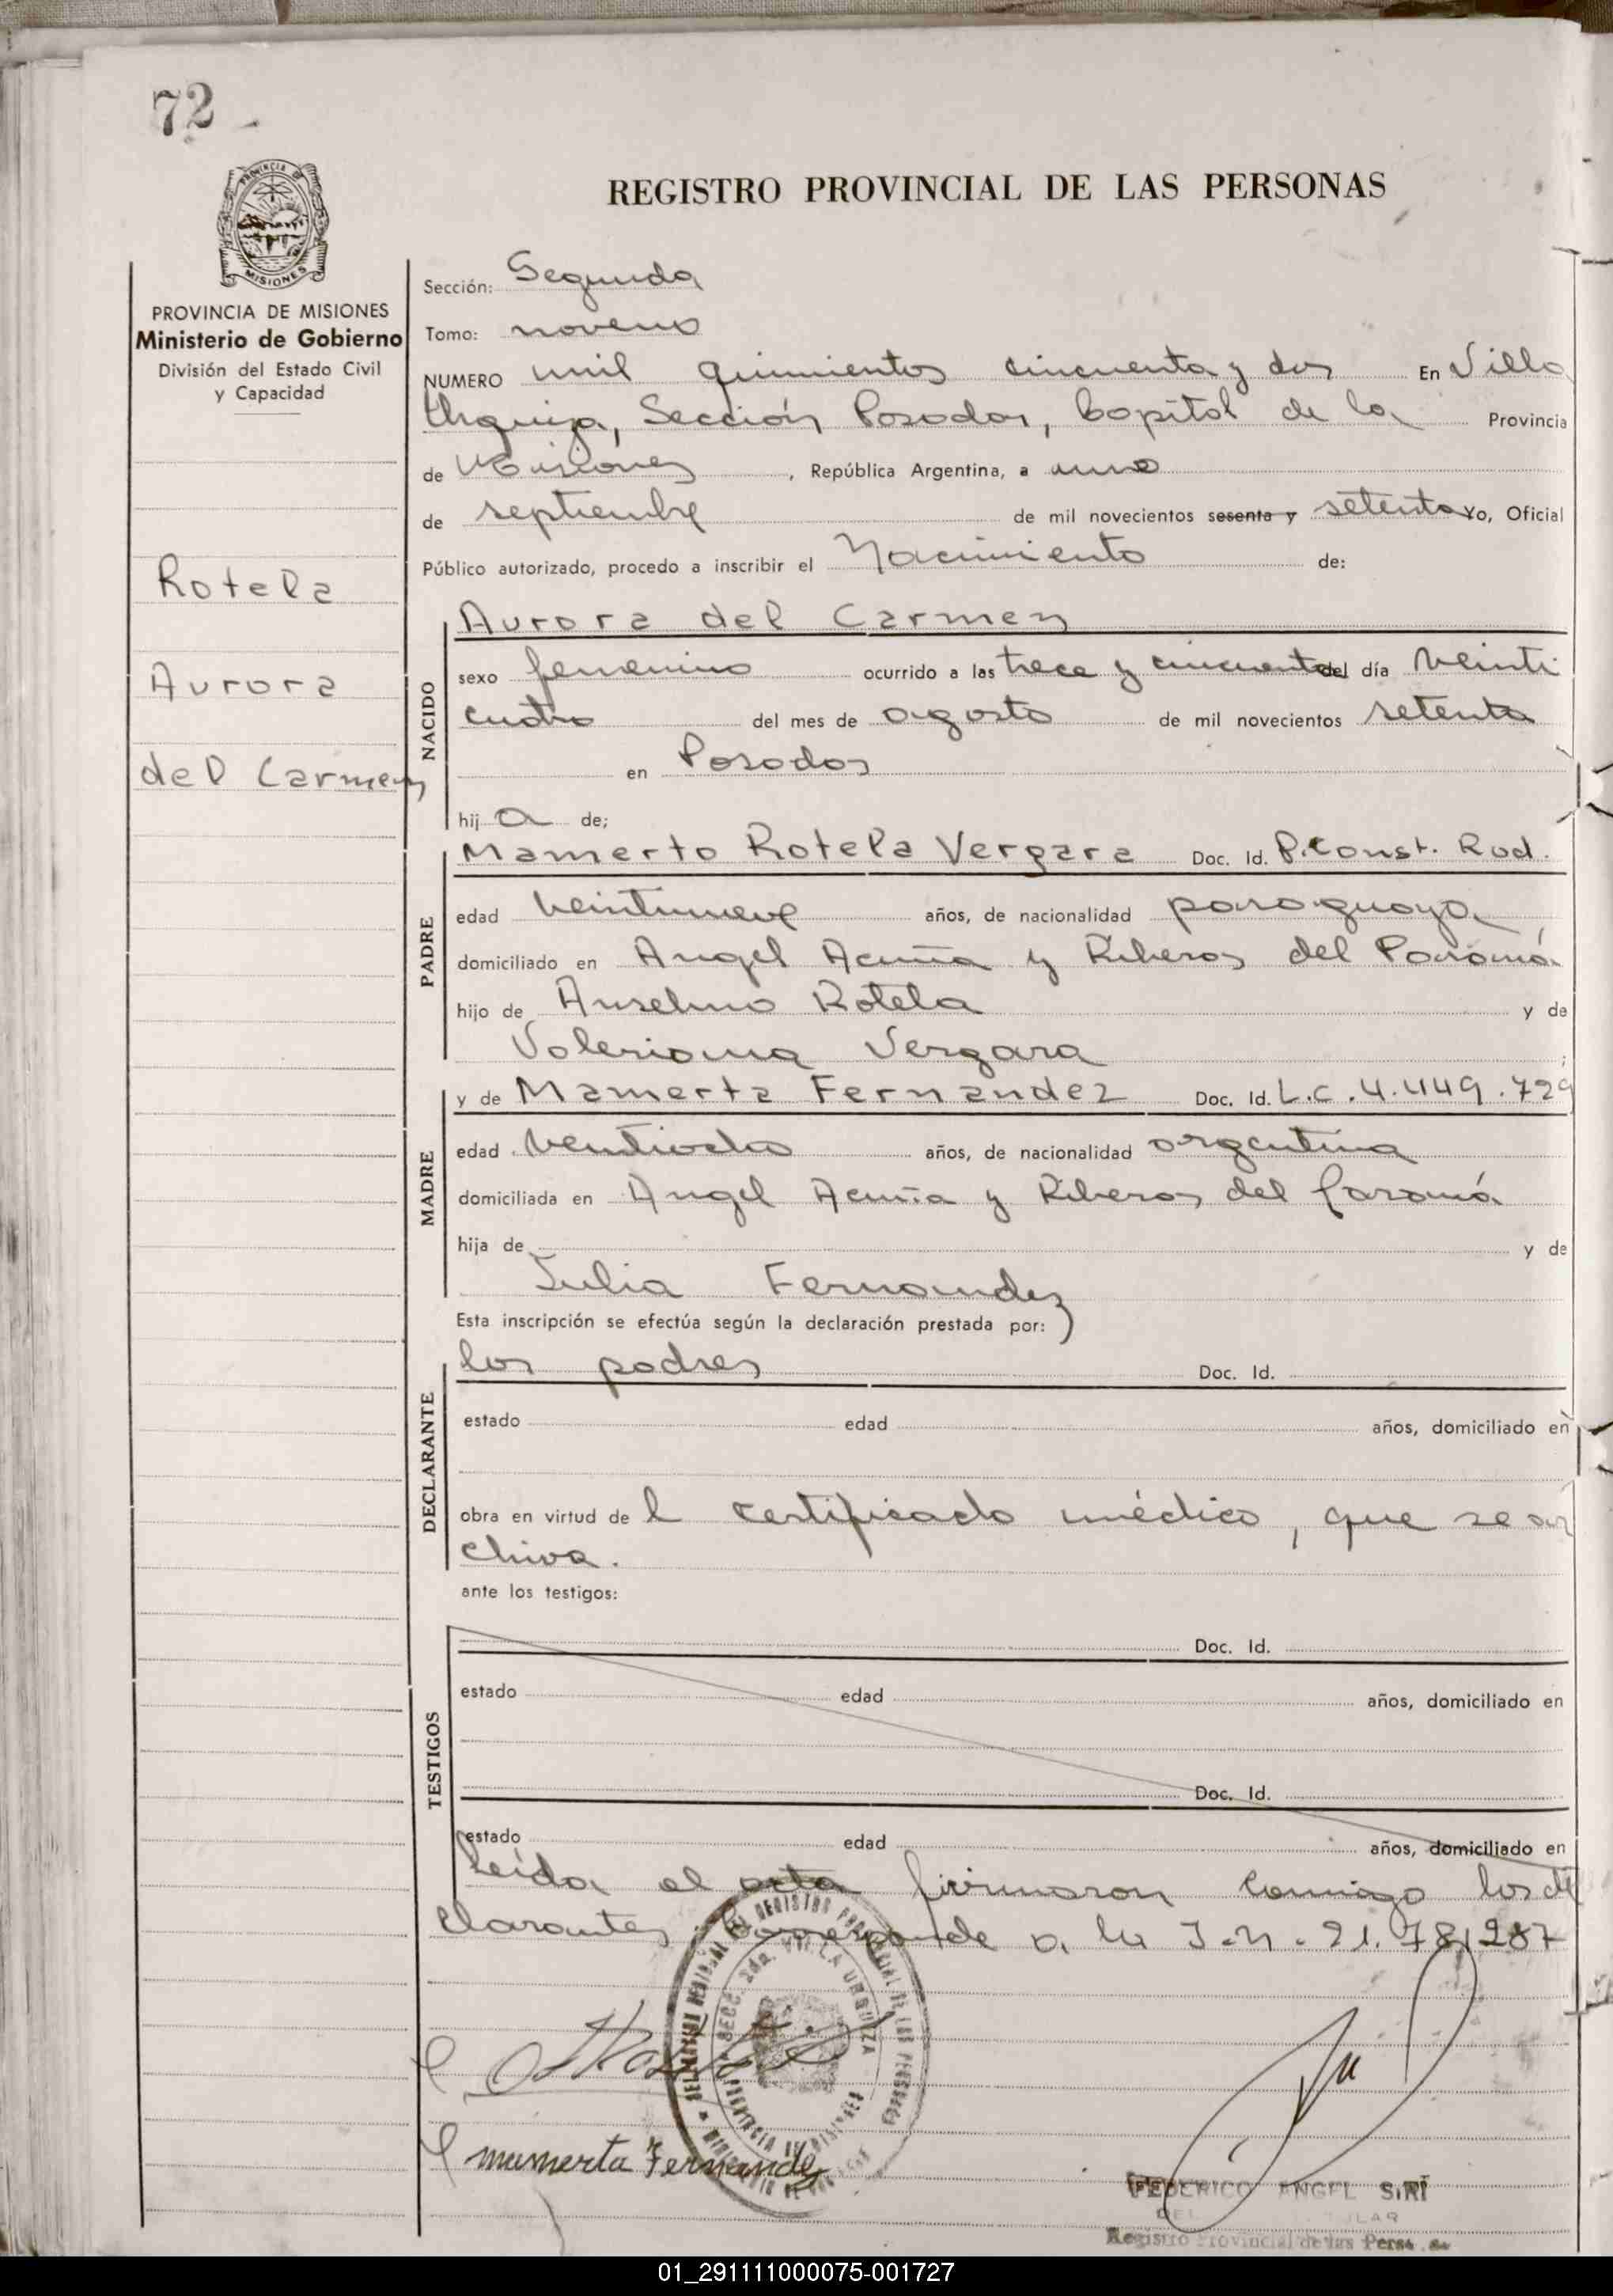 72
PROVINCIA DE MISIONES
MISIONES
PROVINCIA DE MISIONES
Ministerio de Gobierno
División del Estado Civil
y Capacidad
Rotela
Aurora
del Carmen
REGISTRO PROVINCIAL DE LAS PERSONAS
Sección: Segunda
Tomo: noveno
NUMERO mil quinientos cincuenta y dos En Villa
Urquiza, Sección Posadas, Capital de la Provincia
de Misiones, República Argentina, a uno
de septiembre de mil novecientos sesenta y setenta Yo, Oficial
Público autorizado, procedo a inscribir el Nacimiento de:
NACIDO
Aurora del Carmen
sexo femenino ocurrido a las trece y cincuenta del día veinti
cuatro del mes de agosto de mil novecientos setenta
en Posadas
hija de;
PADRE
Mamerto Rotela Vergara Doc. Id. P. Const. Rod.
edad veintinueve años, de nacionalidad paraguaya,
domiciliado en Angel Acuña y Riberas del Paraná
hijo de Anselmo Rotela y de
Valeriana Vergara;
MADRE
y de Mamerta Fernandez Doc. Id. L.C. 4.449.729
edad veintiocho años, de nacionalidad argentina
domiciliada en Angel Acuña y Riberas del Paraná
hija de y de
Julia Fernandez
Esta inscripción se efectúa según la declaración prestada por:
DECLARANTE
los padres Doc. Id.
estado edad años, domiciliado en
obra en virtud del certificado médico, que se ar
chiva.
ante los testigos:
TESTIGOS
Doc. Id.
estado edad años, domiciliado en
Doc. Id.
estado edad años, domiciliado en
Leída el acta firmaron conmigo los de
clarantes. Corresponde a la I.N. 21.781.287
SECC. 2da. VILLA URQUIZA
PROVINCIA DE MISIONES
mamerta Fernandez
FEDERICO ANGEL SIRI
Registro Provincial de las Perso
01_291111000075-001727